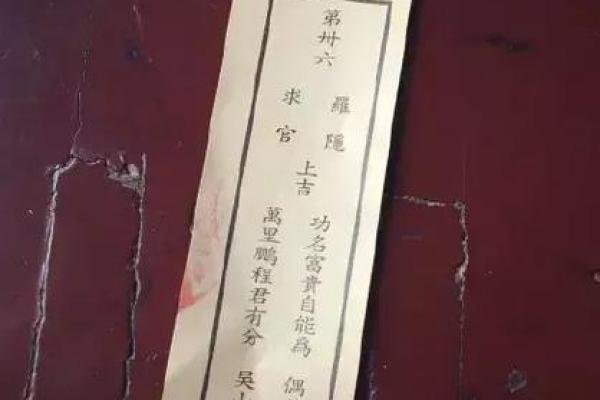 第卅六
羅隱
求官
上吉
功名富貴自能為
偶
萬里鵬程君有分
吳